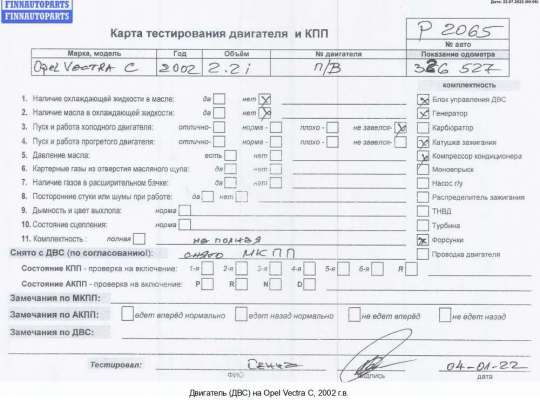 FINNAUTOPARTS
FINNAUTOPARTS
Карта тестирования двигателя и КПП
P 2065
№ авто
Марка, модель Год Объём № двигателя Показание одометра
Opel Vectra C 2002 2.2i П/В 326 527
комплектность
1. Наличие охлаждающей жидкости в масле: да нет
Блок управления ДВС
2. Наличие масла в охлаждающей жидкости: да нет
Генератор
3. Пуск и работа холодного двигателя: отлично- норма - плохо - не завелся-
Карбюратор
4. Пуск и работа прогретого двигателя: отлично- норма - плохо - не завелся-
Катушка зажигания
5. Давление масла: есть нет
Компрессор кондиционера
6. Картерные газы из отверстия масляного щупа: да нет
Моновпрыск
7. Наличие газов в расширительном бачке: да нет
Насос г/у
8. Посторонние стуки или шумы при работе: да нет
Распределитель зажигания
9. Дымность и цвет выхлопа: норма
ТНВД
10. Состояние сцепления: норма
Турбина
11. Комплектность : полная не полная
Форсунки
Снято с ДВС (по согласованию!): снято МКПП
Проводка двигателя
Состояние КПП - проверка на включение: 1-я 2-я 3-я 4-я 5-я 6-я R
Состояние АКПП - проверка на включение: P R N D
Замечания по МКПП:
Замечания по АКПП: едет вперёд нормально едет назад нормально не едет вперёд не едет назад
Замечания по ДВС:
Тестировал: 04-01-22
ФИО подпись дата
Двигатель (ДВС) на Opel Vectra C, 2002 г.в.